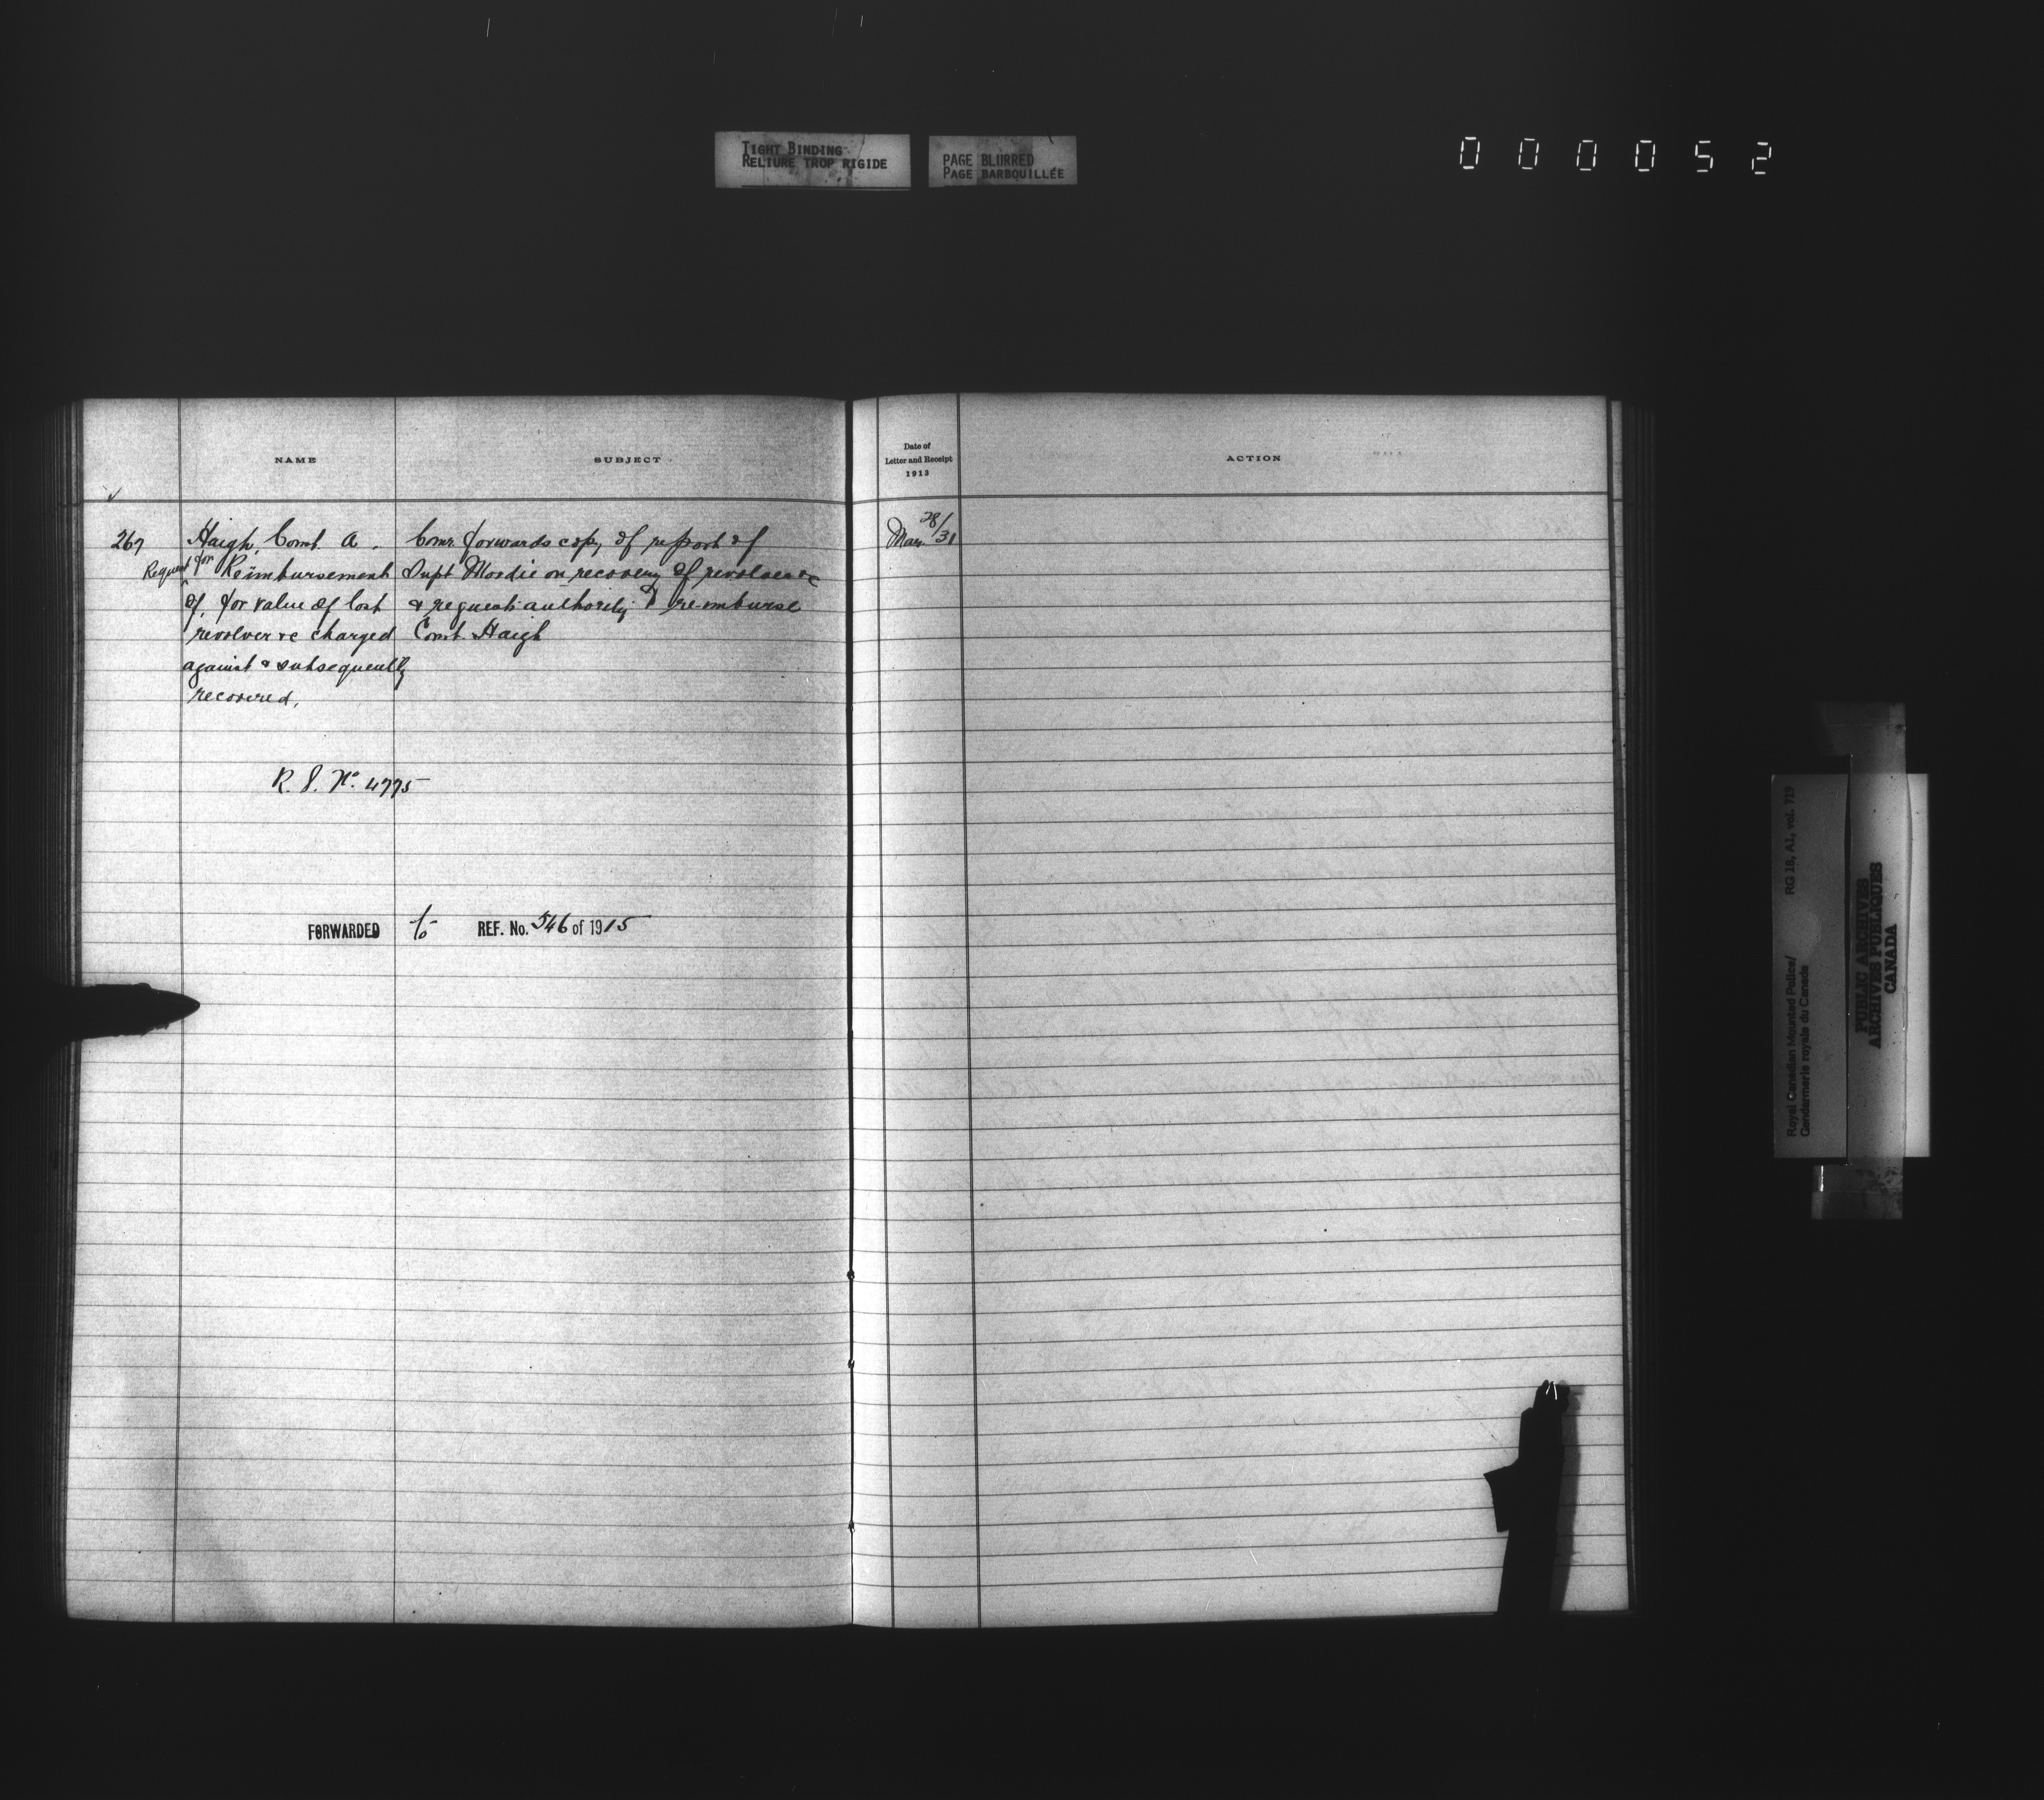 TIGHT BINDING
RELIURE TROP RIGIDE
PAGE BLURRED
PAGE BARBOUILLÉE
000052
NAME
SUBJECT
Date of
Letter and Receipt
1913
ACTION
267
Haigh, Const. A.
Request for Reimbursement
of, for value of lost
revolver &c charged
against & subsequently
recovered.
Comr. forwards copy of report of
Supt Moodie on recovery of revolver &c
& requests authority to re-imburse
Const. Haigh
Mar. 28/31
R. S. No. 4775
FORWARDED to REF. No. 546 of 1915
Royal Canadian Mounted Police/
Gendarmerie royale du Canada
RG 18, A1, vol. 719
PUBLIC ARCHIVES
ARCHIVES PUBLIQUES
CANADA